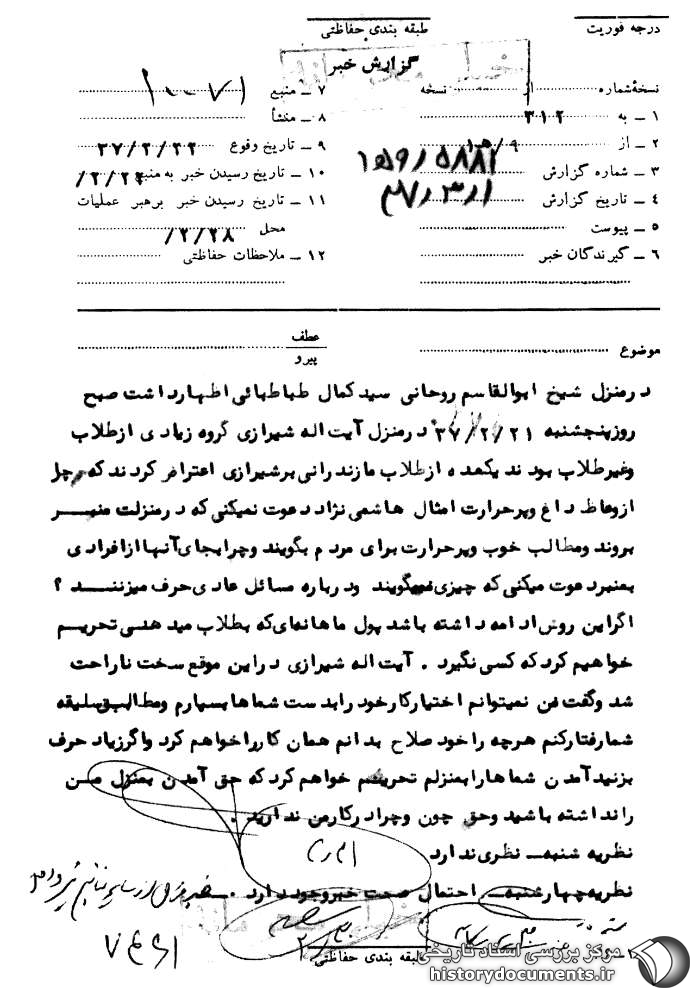 درجه فوریت
طبقه بندی حفاظتی
گزارش خبر
نسخهٔ شماره از نسخه
۷ ـ منبع ۱۰۰۷۱
۱ ـ به ۳۱۲
۸ ـ منشأ
۲ ـ از
۹ ـ تاریخ وقوع ۳۷/۲/۲۲
۳ ـ شماره گزارش
۱۰ ـ تاریخ رسیدن خبر به منبع
۴ ـ تاریخ گزارش
۱۱ ـ تاریخ رسیدن خبر برهبر عملیات
۵ ـ پیوست
محل ۲/۲۸/
۶ ـ گیرندگان خبر
۱۲ ـ ملاحظات حفاظتی
موضوع
عطف
پیرو
درمنزل شیخ ابوالقاسم روحانی سیدکمال طباطبائی اظهارداشت صبح
روزپنجشنبه ۳۷/۲/۲۱ درمنزل آیت اله شیرازی گروه زیادی ازطلاب
وغیرطلاب بودند یکعده ازطلاب مازندرانی برشیرازی اعتراض کردند که
ازوعاظ داغ وپرحرارت امثال هاشمی نژاد دعوت نمیکنی که درمنزلت منبر
بروند ومطالب خوب وپرحرارت برای مردم بگویند وچرابجای آنها ازافرادی
بمنبردعوت میکنی که چیزی نمیگویند ودرباره مسائل عادی حرف میزنند ؟
اگراین روش ادامه داشته باشد پول ماهانه‌ای که بطلاب میدهی تحریم
خواهیم کرد که کسی نگیرد . آیت اله شیرازی دراین موقع سخت ناراحت
شد وگفت من نمیتوانم اختیارکارخود رابدست شماهابسپارم ومطابق سلیقه
شمارفتارکنم هرچه راخود صلاح بدانم همان کارراخواهم کرد واگرزیاد حرف
بزنیدآمدن شماهارابمنزلم تحریم خواهم کرد که حق آمدن بمنزل من
رانداشته باشید وحق چون وچرادرکارمن ندارید .
نظریه شنبه ـ نظری ندارد
نظریه چهارشنبه ـ احتمال صحت خبروجود دارد .
طبقه بندی حفاظتی
مرکز بررسی اسناد تاریخی
historydocuments.ir